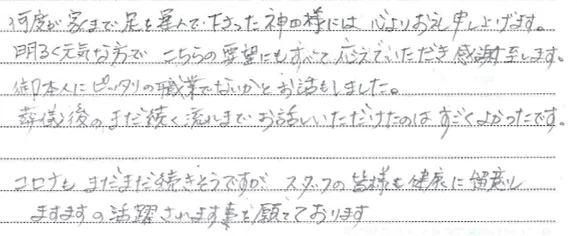 何度か家まで足を運んで下さった神田様には心よりお礼申し上げます。
明るく元気な方で こちらの要望にもすべて応えていただき感謝至します。
御本人にピッタリの職業でないかとお話もしました。
葬儀後のまだ続く流れまでお話しいただけたのはすごくよかったです。
コロナもまだまだ続きそうですが スタッフの皆様も健康に留意し
ますますの活躍されます事を願っております